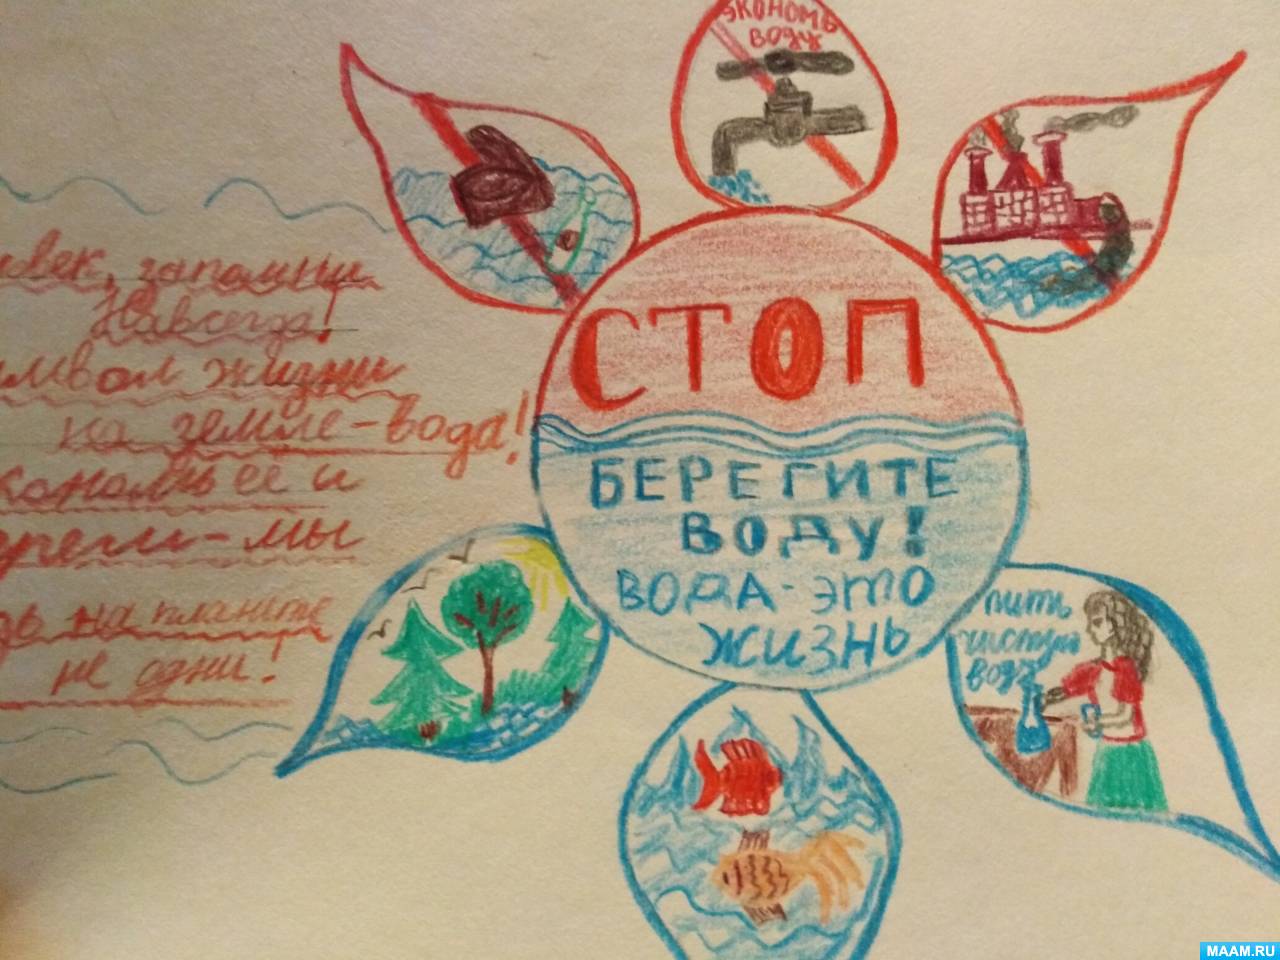 ЭКОНОМЬ
ВОДУ
век, запомни
Навсегда!
имвол жизни
на земле-вода!
кономь её и
ереги-мы
дь на планете
не одни!
СТОП
БЕРЕГИТЕ
ВОДУ!
ВОДА-ЭТО
ЖИЗНЬ
пить
чистую
воду
MAAM.RU